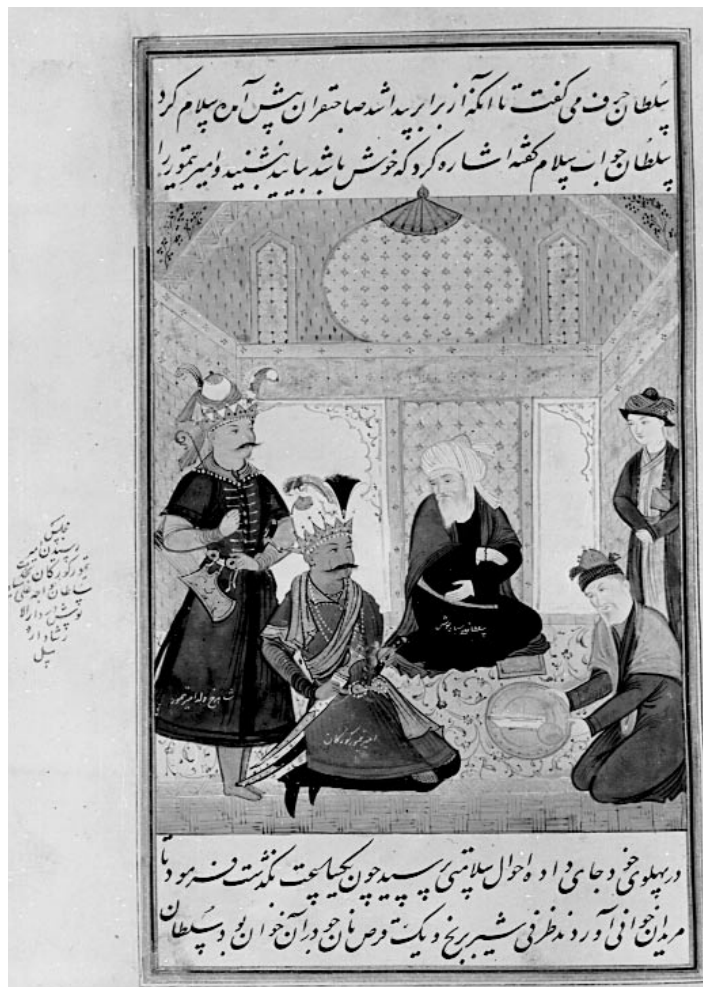 سلطان حرف می گفت تا انکه از برابر پیدا شد صاحبقران پیش آمده سلام کرد
سلطان جواب سلام گفته اشاره کرد که خوش باشد بیایید بنشینید و امیر تیمور را
سلطان سیاه پوش
شاهرخ ولد امیر تیمور
امیر تیمور گورکان
رسیدن امیر
تیمور گورکان
سلطان خواجه علی
در پهلوی خود جای داده احوال سلامتی پرسید چون یکساعت نگذشت فرمود تا
مریدان خوانی آوردند ظرفی شیر برنج و یک قرص نان جو در آن خوان بود سلطان